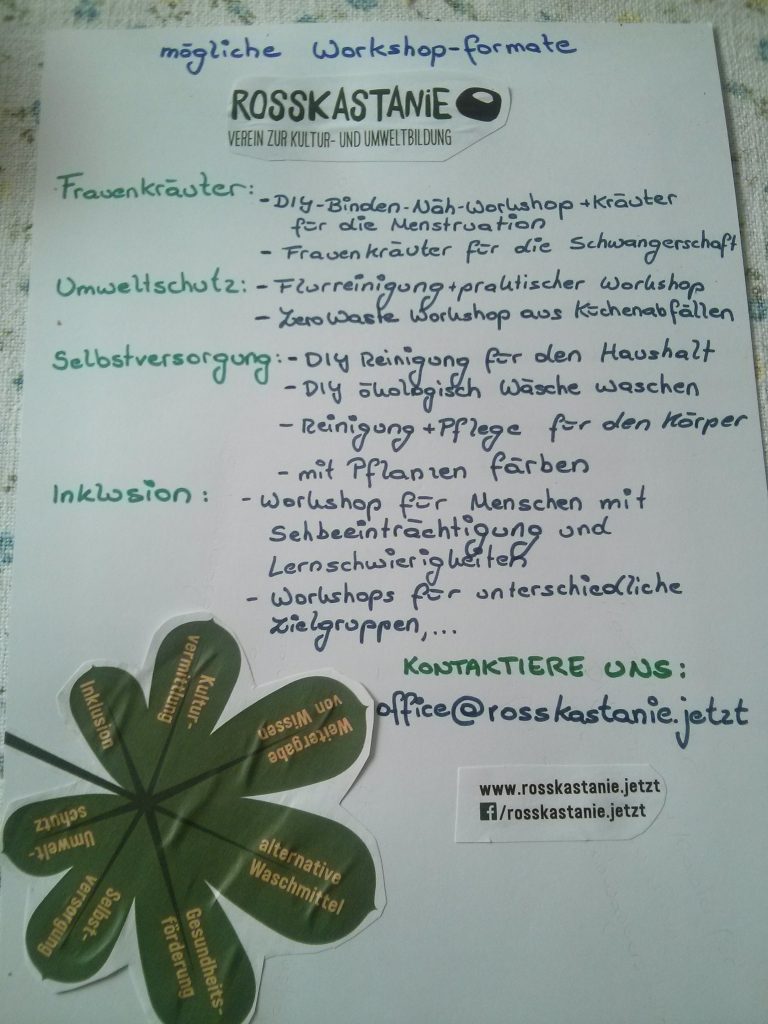 mögliche Workshop-formate
ROSSKASTANIE
VEREIN ZUR KULTUR- UND UMWELTBILDUNG
Frauenkräuter: - DIY-Binden-Näh-Workshop + Kräuter
für die Menstruation
- Frauenkräuter für die Schwangerschaft
Umweltschutz: - Flurreinigung + praktischer Workshop
- Zero Waste Workshop aus Küchenabfällen
Selbstversorgung: - DIY Reinigung für den Haushalt
- DIY ökologisch Wäsche waschen
- Reinigung + Pflege für den Körper
- mit Pflanzen färben
Inklusion: - Workshop für Menschen mit
Sehbeeinträchtigung und
Lernschwierigkeiten
- Workshops für unterschiedliche
Zielgruppen,...
KONTAKTIERE UNS:
office@rosskastanie.jetzt
www.rosskastanie.jetzt
f/rosskastanie.jetzt
Inklusion
Kultur-
vermittlung
Weitergabe
von Wissen
alternative
Waschmittel
Gesundheits-
förderung
Selbst-
versorgung
Umwelt-
schutz